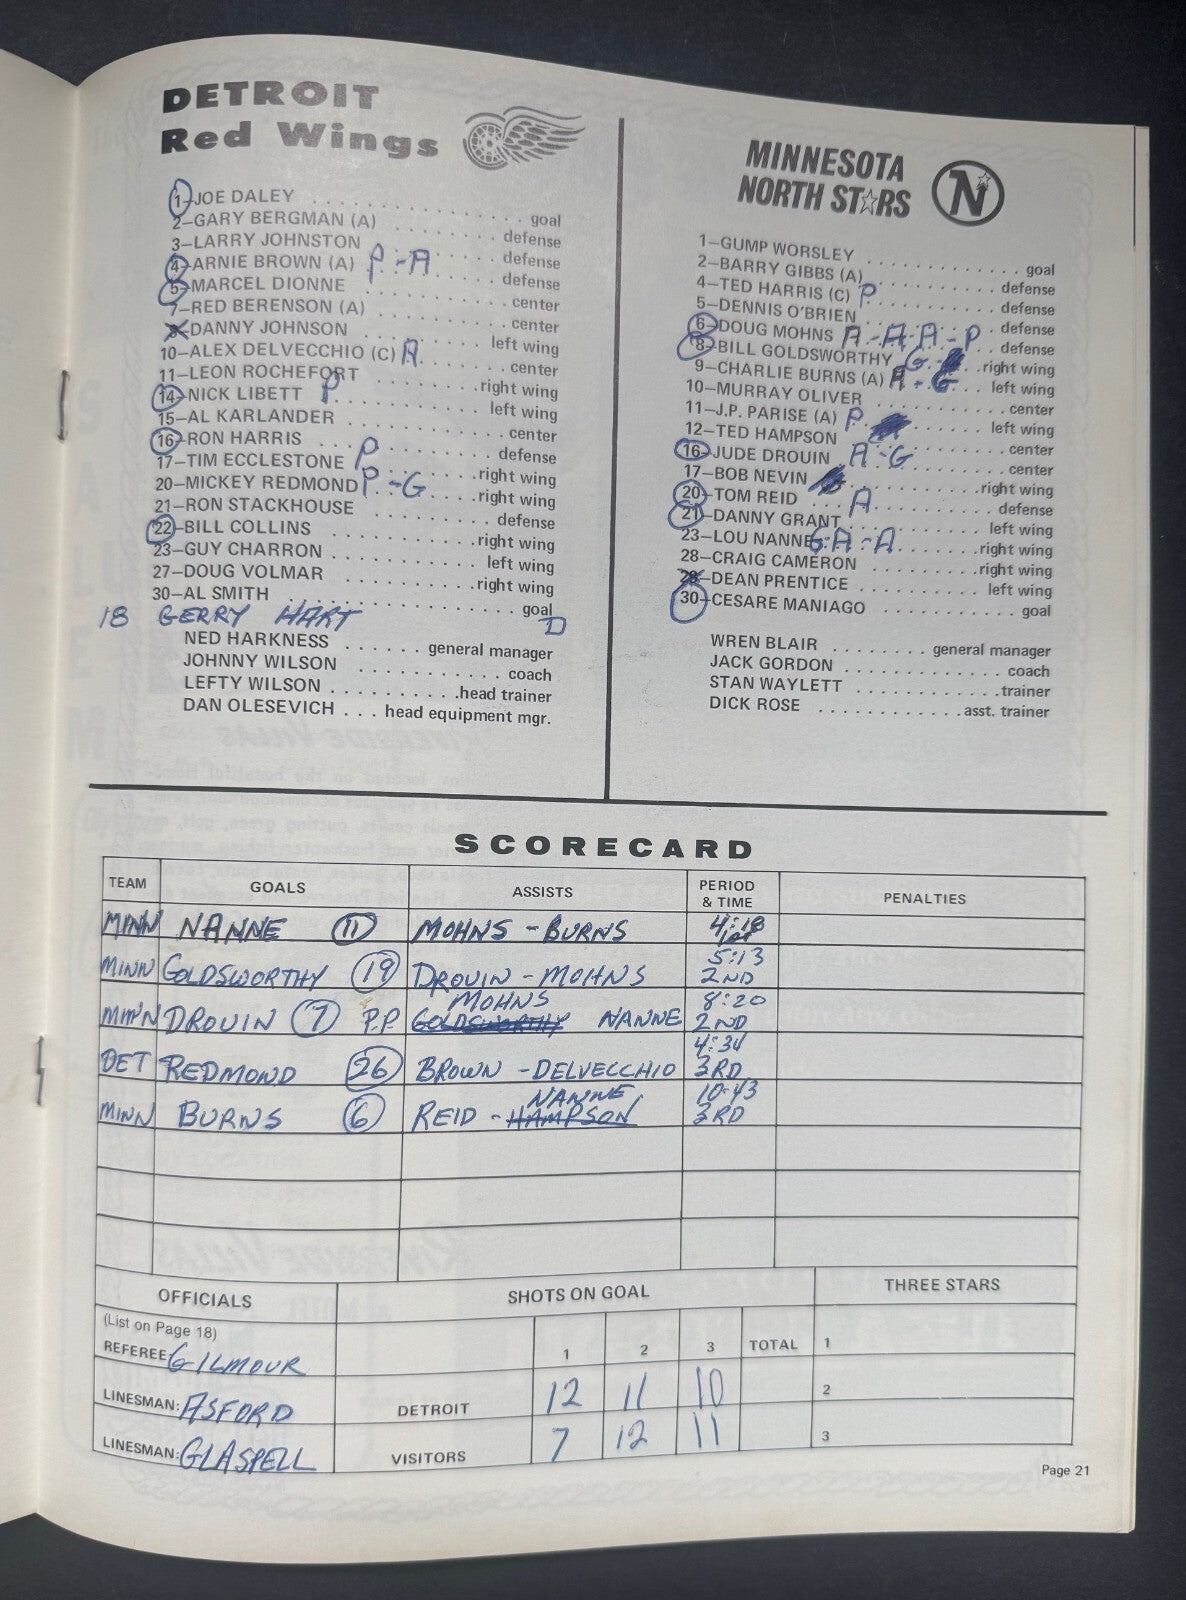 DETROIT
Red Wings
1—JOE DALEY . . . . . . . . goal
2—GARY BERGMAN (A) . . . . . . . . defense
3—LARRY JOHNSTON . . . . . . . . defense
4—ARNIE BROWN (A) P - A . . . . . defense
5—MARCEL DIONNE . . . . . . . . center
7—RED BERENSON (A) . . . . . . . . center
DANNY JOHNSON . . . . . . . . left wing
10—ALEX DELVECCHIO (C) A . . . . . center
11—LEON ROCHEFORT . . . . . . . . right wing
14—NICK LIBETT P . . . . . . . . left wing
15—AL KARLANDER . . . . . . . . center
16—RON HARRIS . . . . . . . . defense
17—TIM ECCLESTONE P . . . . . . . . right wing
20—MICKEY REDMOND P - G . . . . . right wing
21—RON STACKHOUSE . . . . . . . . defense
22—BILL COLLINS . . . . . . . . right wing
23—GUY CHARRON . . . . . . . . left wing
27—DOUG VOLMAR . . . . . . . . right wing
30—AL SMITH . . . . . . . . goal
18 GERRY HART D
NED HARKNESS . . . . . . general manager
JOHNNY WILSON . . . . . . . . coach
LEFTY WILSON . . . . . . . . . .head trainer
DAN OLESEVICH . . . head equipment mgr.
MINNESOTA
NORTH STARS
N
1—GUMP WORSLEY . . . . . . . . goal
2—BARRY GIBBS (A) . . . . . . . . defense
4—TED HARRIS (C) P . . . . . . . . defense
5—DENNIS O'BRIEN . . . . . . . . defense
6—DOUG MOHNS A - A - A - P . . defense
8—BILL GOLDSWORTHY G - . . right wing
9—CHARLIE BURNS (A) A - G . . . left wing
10—MURRAY OLIVER . . . . . . . . center
11—J.P. PARISE (A) P . . . . . . . . left wing
12—TED HAMPSON . . . . . . . . center
16—JUDE DROUIN A - G . . . . . . center
17—BOB NEVIN . . . . . . . . right wing
20—TOM REID A . . . . . . . . defense
21—DANNY GRANT . . . . . . . . left wing
23—LOU NANNE G A - A . . . . . . right wing
28—CRAIG CAMERON . . . . . . . . right wing
DEAN PRENTICE . . . . . . . . left wing
30—CESARE MANIAGO . . . . . . . . goal
WREN BLAIR . . . . . . . . general manager
JACK GORDON . . . . . . . . . . . coach
STAN WAYLETT . . . . . . . . . . . .trainer
DICK ROSE . . . . . . . . . . . .asst. trainer
SCORECARD
TEAM GOALS ASSISTS PERIOD & TIME PENALTIES
MINN NANNE 11 MOHNS - BURNS 4:18 1st
MINN GOLDSWORTHY 19 DROUIN - MOHNS 5:13 2ND
MINN DROUIN 7 P.P. GOLDSWORTHY MOHNS NANNE 8:20 2ND
DET REDMOND 26 BROWN - DELVECCHIO 4:34 3RD
MINN BURNS 6 REID - HAMPSON NANNE 10:43 3RD
OFFICIALS SHOTS ON GOAL THREE STARS
(List on Page 18)
REFEREE: GILMOUR 1 2 3 TOTAL 1
LINESMAN: ASFORD DETROIT 12 11 10 2
LINESMAN: GLASPELL VISITORS 7 12 11 3
Page 21